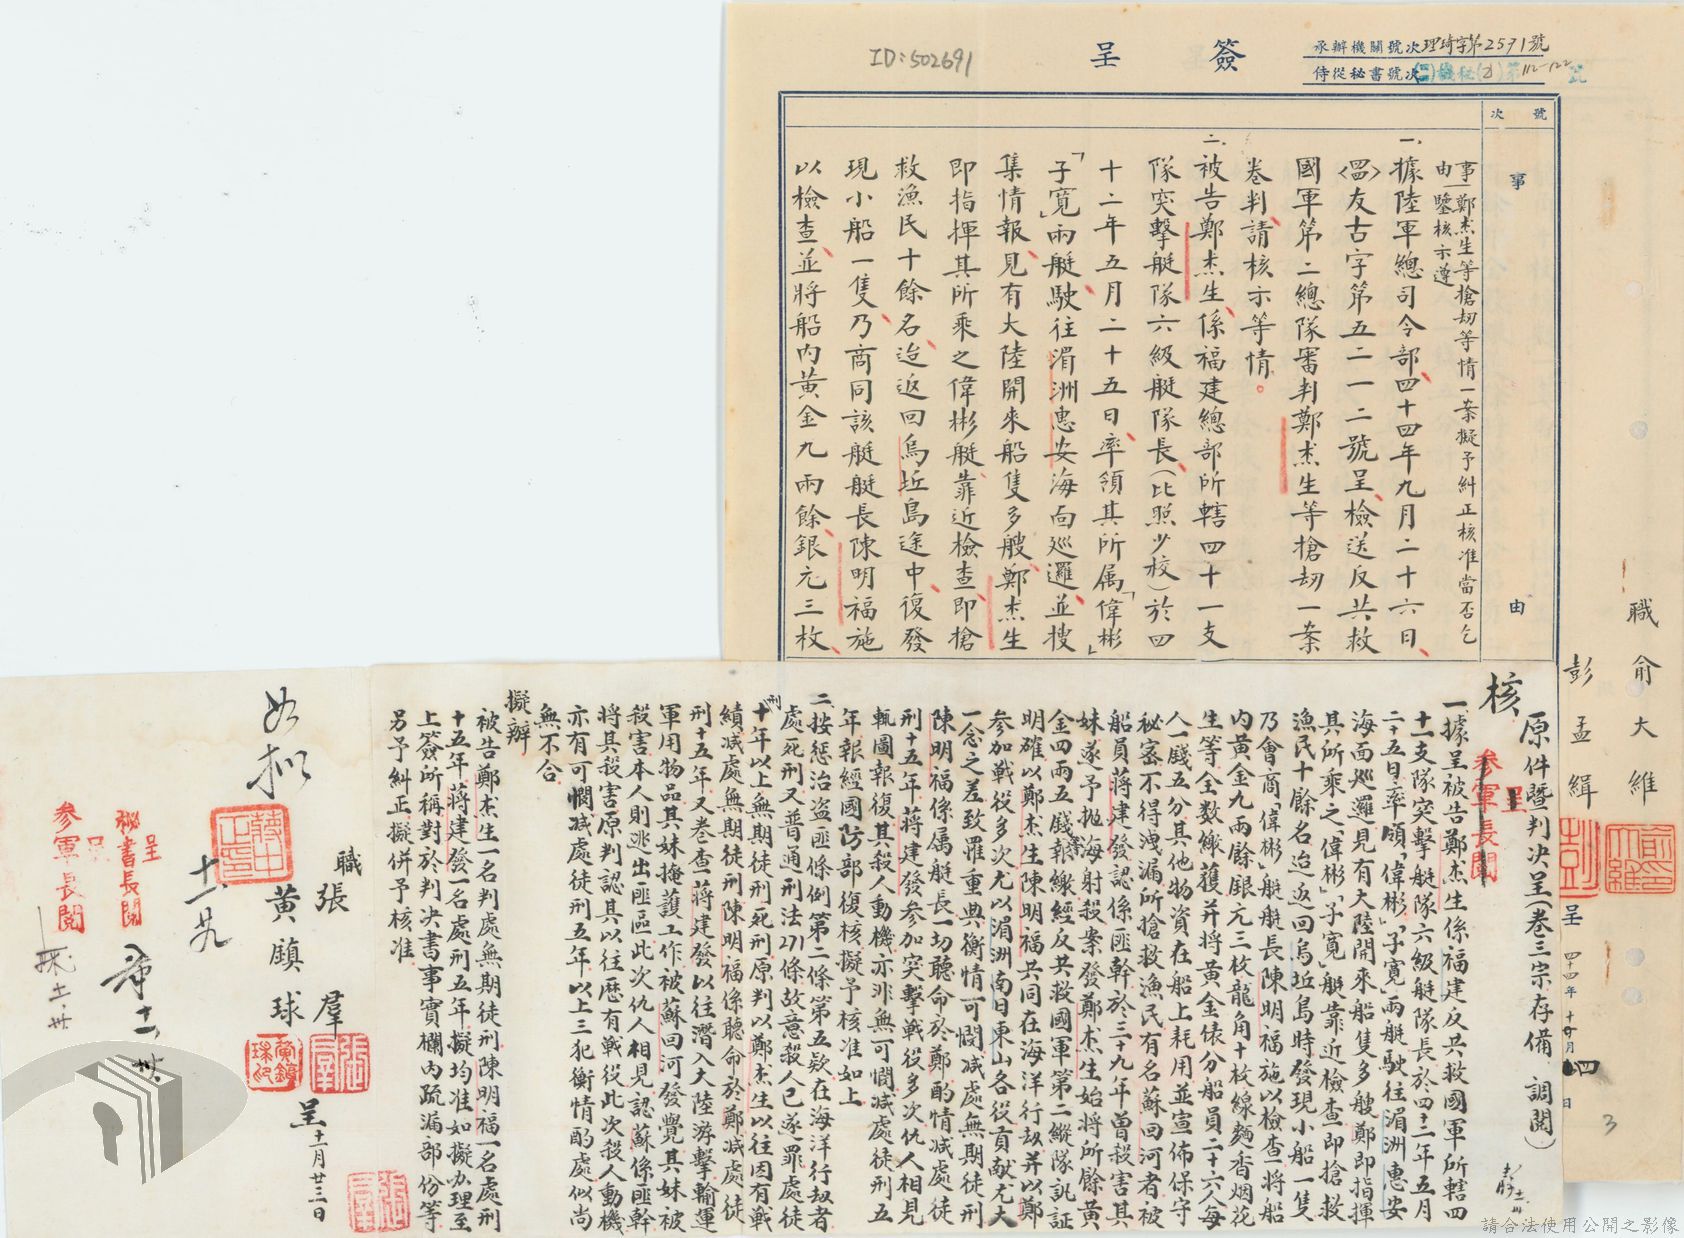 簽呈
ID:502691
承辦機關號次理琦字第2571號
侍從秘書號次
號次
事由
事由 鄭杰生等搶劫等情一案擬予糾正核准當否乞
鑒核示遵
一、據陸軍總司令部四十四年九月二十六日
友古字第五二一二號呈檢送反共救
國軍第二總隊審判鄭杰生等搶劫一案
卷判請核示等情。
二、被告鄭杰生係福建總部所轄四十一支
隊突擊艇隊六級艇隊長(比照少校)於四
十二年五月二十五日率領其所屬「偉彬」
「子寬」兩艇駛往湄洲惠安海面巡邏並搜
集情報見有大陸開來船隻多艘鄭杰生
即指揮其所乘之偉彬艇靠近檢查即搶
救漁民十餘名迨返回烏坵島途中復發
現小船一隻乃商同該艇艇長陳明福施
以檢查並將船內黃金九兩餘銀元三枚
職 俞大維
彭孟緝
呈 四十四年
3
核
原件暨判決呈(卷三宗存備 調閱)
呈
參軍長閱
一據呈被告鄭杰生係福建反共救國軍所轄四
十一支隊突擊艇隊六級艇隊長於四十二年五月
二十五日率領「偉彬」「子寬」兩艇駛往湄洲惠安
海面巡邏見有大陸開來船隻多艘鄭即指揮
其所乘之「偉彬」「子寬」艇靠近檢查即搶救
漁民十餘名迨返回烏坵島時發現小船一隻
乃會商「偉彬」艇艇長陳明福施以檢查將船
內黃金九兩餘銀元三枚龍角十枚線麵香烟花
生等全數繳獲并將黃金俵分船員二十六人每
人一錢五分其他物資在船上耗用並宣佈保守
秘密不得洩漏所搶救漁民有名蘇回河者被
船員蔣建發認係匪幹於三十九年曾殺害其
妹遂予拋海射殺案發鄭杰生始將所餘黃
金四兩五錢報繳經反共救國軍第二縱隊訊証
明確以鄭杰生陳明福共同在海洋行劫并以鄭
參加戰役多次尤以湄洲南日東山各役貢献尤大
一念之差致罹重典衡情可憫減處無期徒刑
陳明福係属艇長一切聽命於鄭酌情減處徒
刑十五年蔣建發參加突擊戰役多次仇人相見
輒圖報復其殺人動機亦非無可憫減處徒刑五
年報經國防部復核擬予核准如上
二按懲治盜匪條例第二條第五款在海洋行劫者
處死刑又普通刑法271條故意殺人已遂罪處徒刑
十年以上無期徒刑死刑原判以鄭杰生以往因有戰
績減處無期徒刑陳明福係聽命於鄭減處徒
刑十五年又卷查蔣建發以往潛入大陸游擊輸運
軍用物品其妹掩護工作被蘇回河發覺其妹被
殺害本人則逃出匪區此次仇人相見認蘇係匪幹
將其殺害原判認其以往歷有戰役此次殺人動機
亦有可憫減處徒刑五年以上三犯衡情酌處似尚
無不合
擬辦
被告鄭杰生一名判處無期徒刑陳明福一名處刑
十五年蔣建發一名處刑五年擬均准如擬办理至
上簽所稱對於判決書事實欄內疏漏部份等
另予糾正擬併予核准
職 張羣
黃鎮球
呈十一月廿三日
如擬
蔣中正印
十一、廿九
呈
秘書長閱
呈
參軍長閱
請合法使用公開之影像